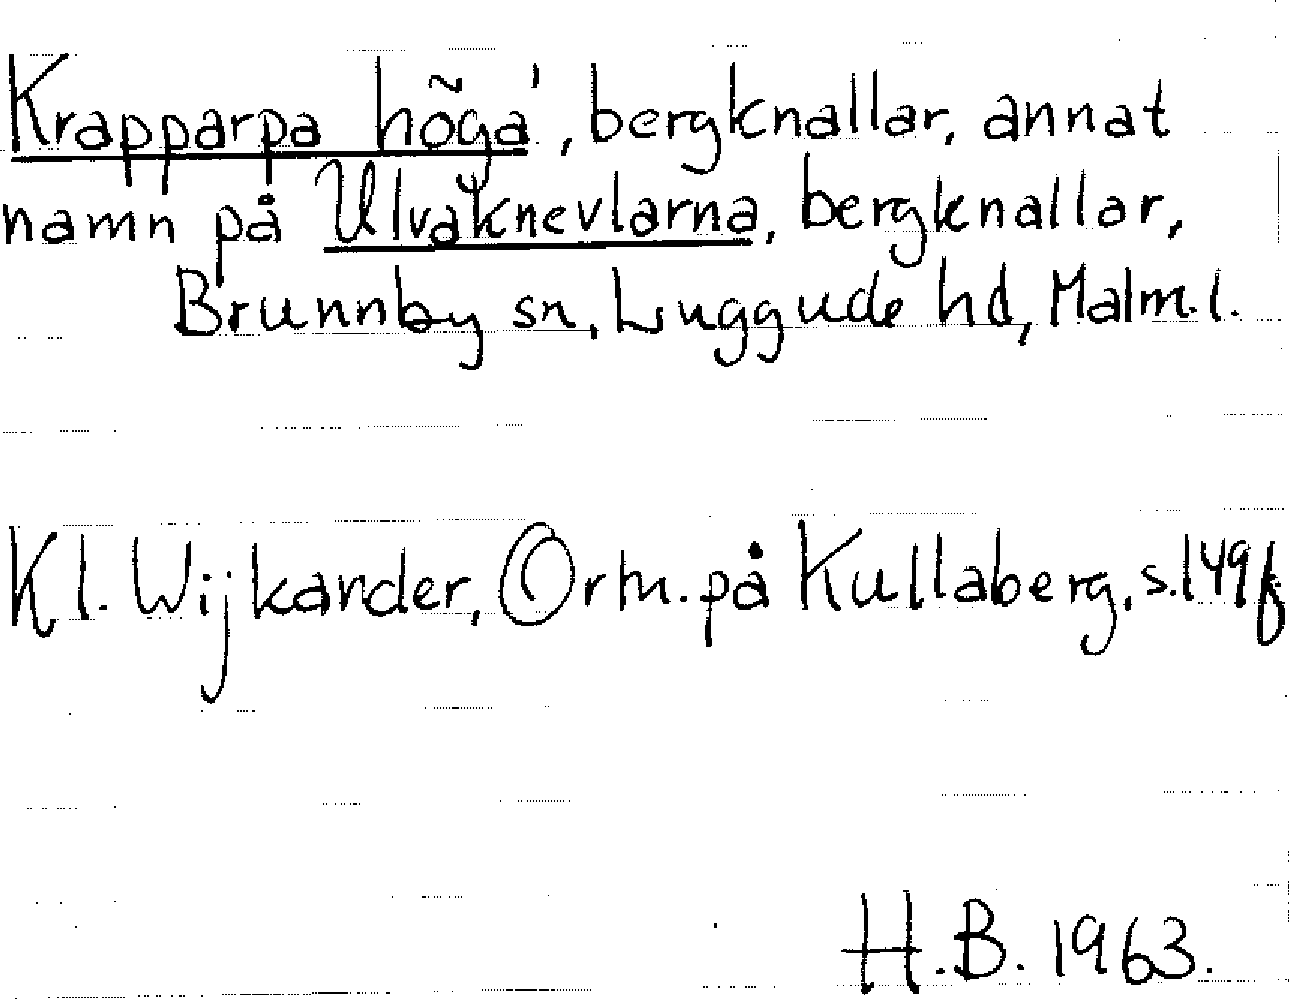 Krapparpa höga', bergknallar, annat
namn på Ulvaknevlarna, bergknallar,
Brunnby sn, Luggude hd, Malm.l.
Kl. Wijkander, Ortn. på Kullaberg, s.149f
H.B. 1963.